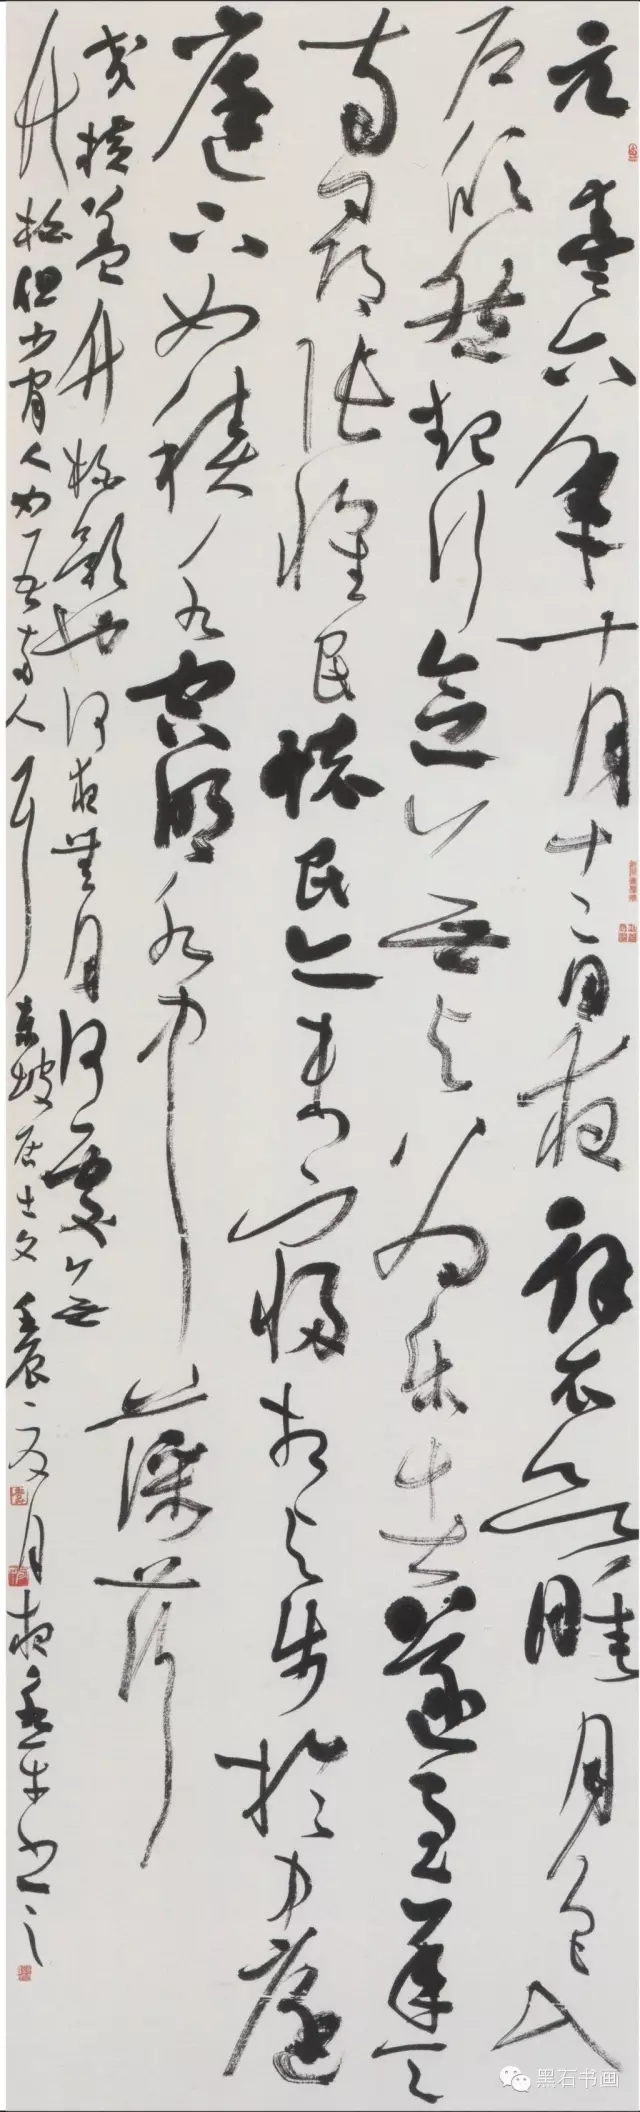 元豐六年十月十二日夜解衣欲睡月色入
户欣然起行念无与为乐者遂至承天
寺尋張懷民懷民亦未寢相与步於中庭
庭下如積水空明水中藻荇
交横盖竹柏影也何夜無月何處无
竹柏但少閒人如吾兩人耳 東坡居士文 壬辰夏月夜 書之
黑石书画